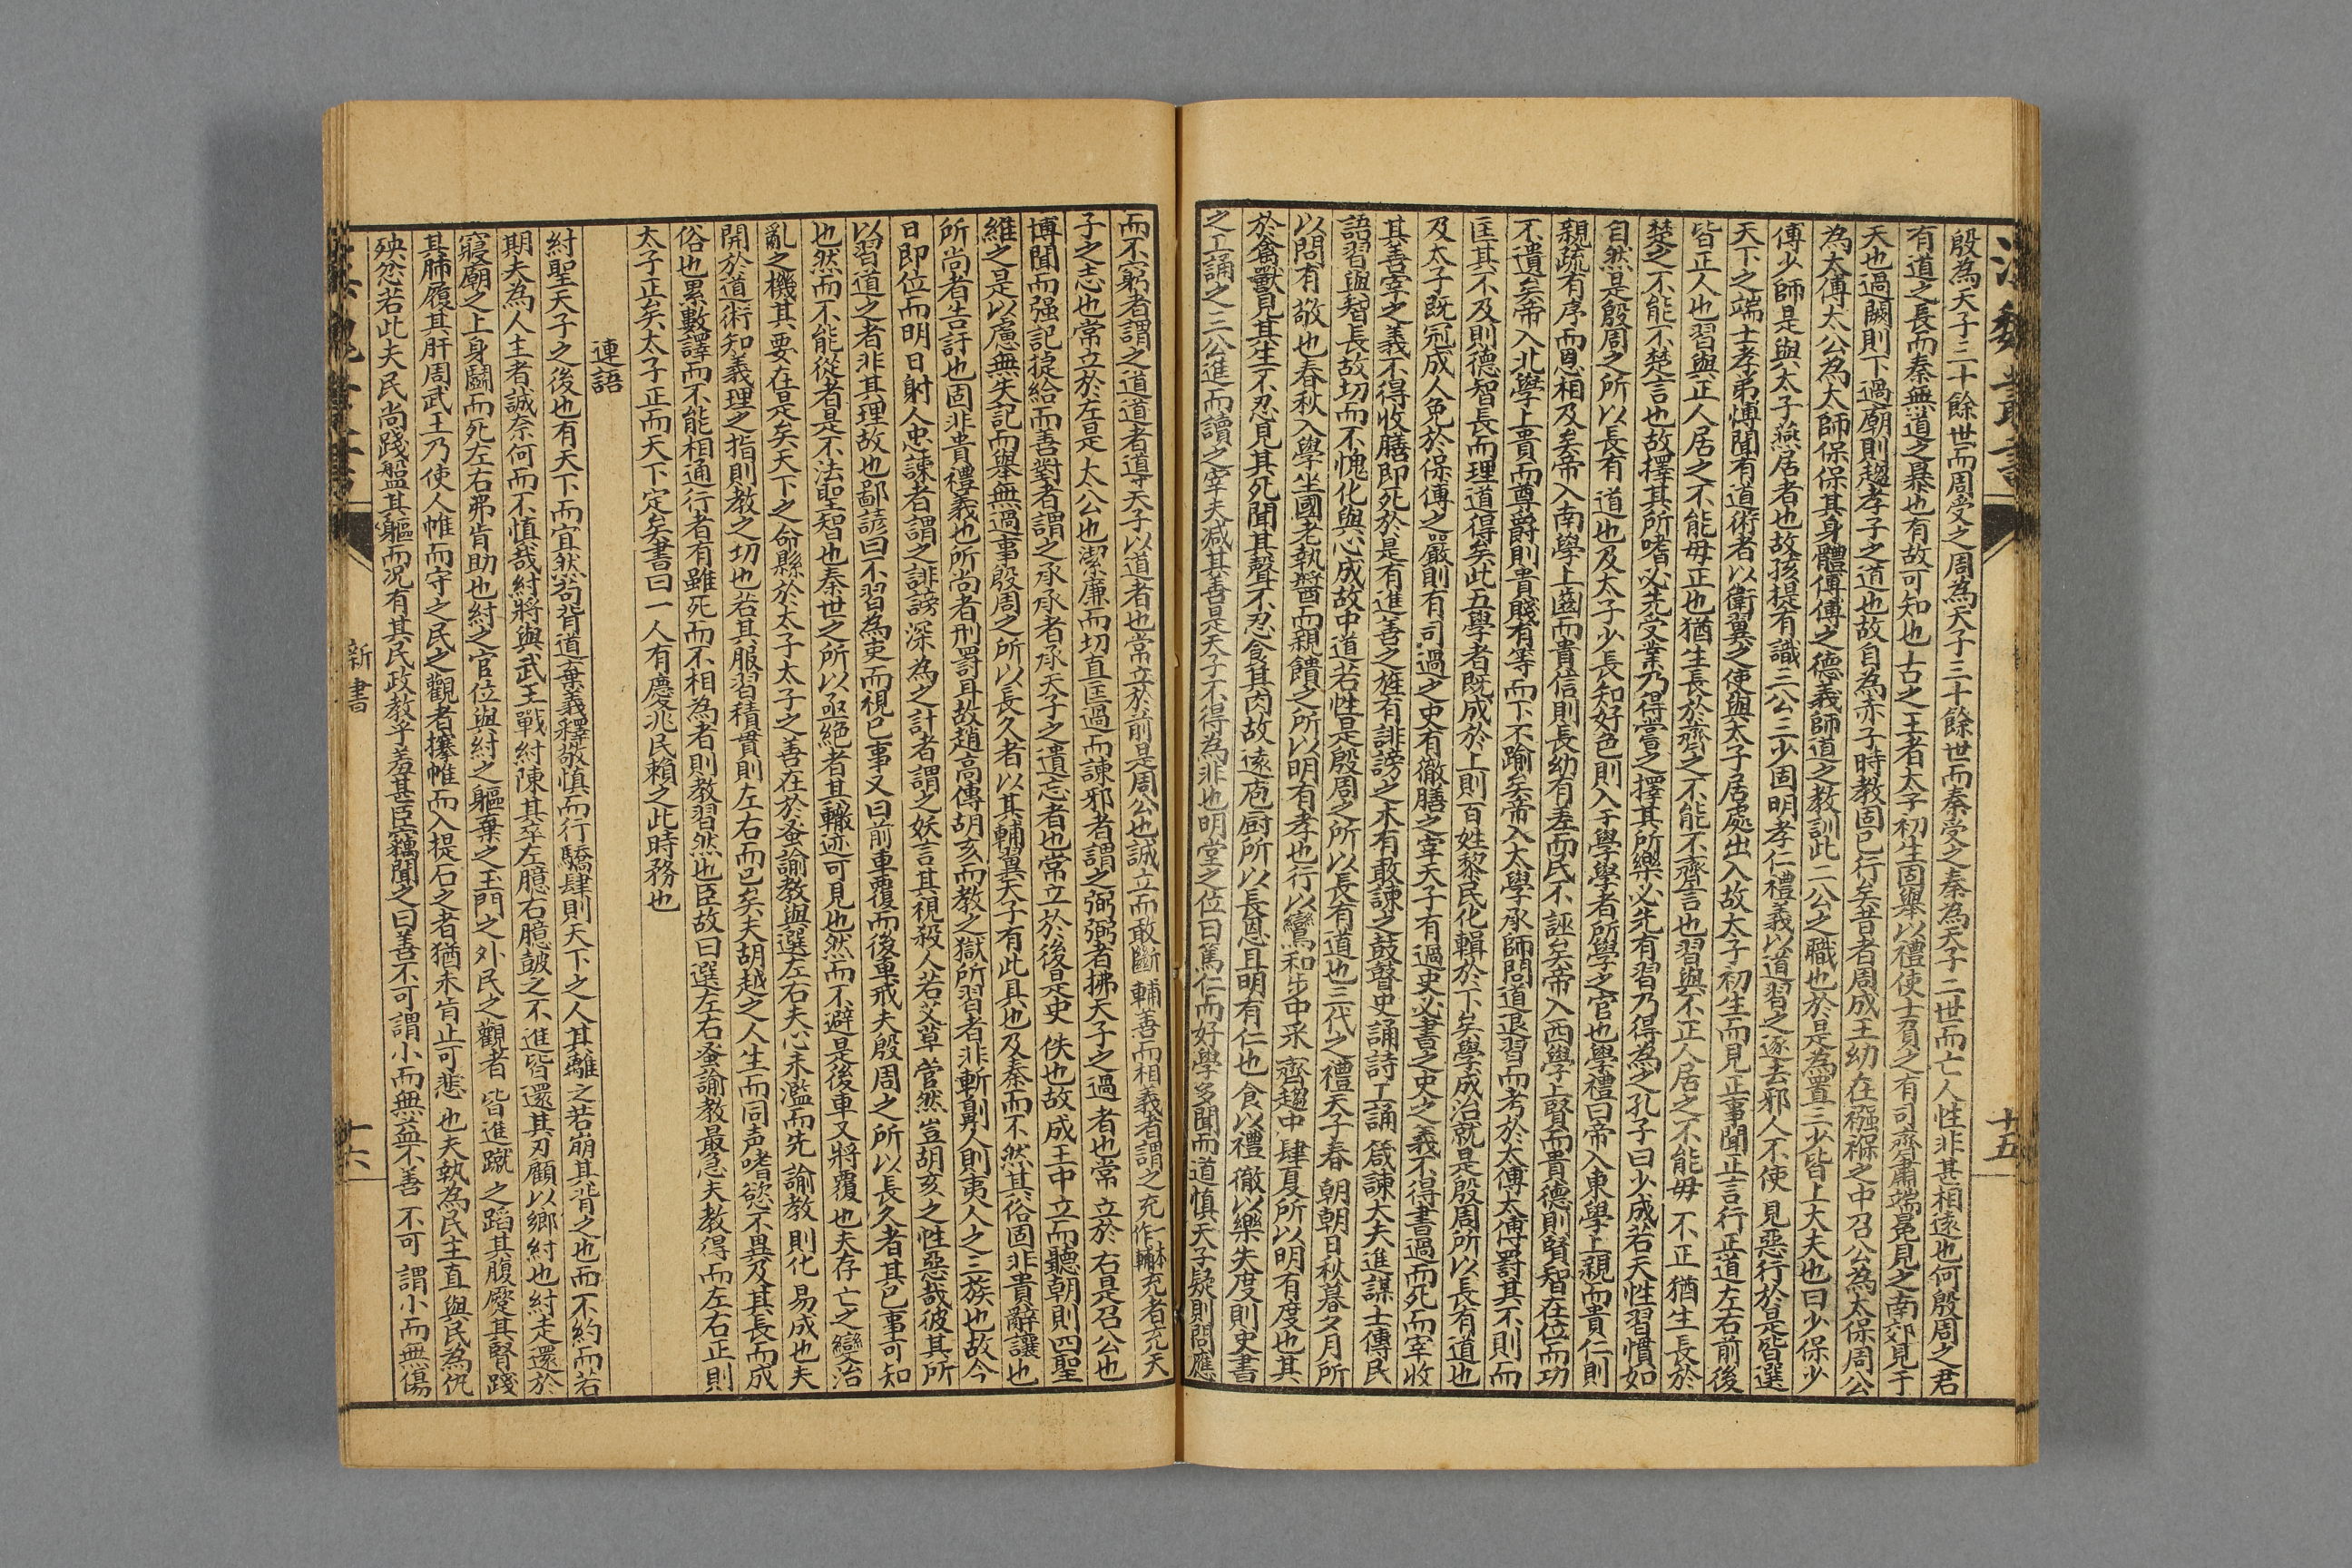 漢魏叢書
十五
殷為天子三十餘世而周受之周為天子三十餘世而秦受之秦為天子二世而亡人性非甚相遠也何殷周之君
有道之長而秦無道之暴也有故可知也古之王者太子初生固舉以禮使士負之有司齊肅端冕見之南郊見于
天也過闕則下過廟則趨孝子之道也故自為赤子時教固已行矣昔者周成王幼在襁褓之中召公為太保周公
為太傅太公為太師保保其身體傅傅之德義師道之教訓此三公之職也於是為置三少皆上大夫也曰少保少
傅少師是與太子燕居者也故孩提有識三公三少固明孝仁禮義以道習之逐去邪人不使見惡行於是皆選
天下之端士孝弟博聞有道術者以衛翼之使與太子居處出入故太子初生而見正事聞正言行正道左右前後
皆正人也習與正人居之不能毋正也猶生長於齊之不能不齊言也習與不正人居之不能毋不正猶生長於
楚之不能不楚言也故擇其所嗜必先受業乃得嘗之擇其所樂必先有習乃得為之孔子曰少成若天性習慣如
自然是殷周之所以長有道也及太子少長知好色則入于學學者所學之官也學禮曰帝入東學上親而貴仁則
親疏有序而恩相及矣帝入南學上齒而貴信則長幼有差而民不誣矣帝入西學上賢而貴德則賢智在位而功
不遺矣帝入北學上貴而尊爵則貴賤有等而下不踰矣帝入太學承師問道退習而考於太傅太傅罰其不則而
匡其不及則德智長而理道得矣此五學者既成於上則百姓黎民化輯於下矣學成治就是殷周所以長有道也
及太子既冠成人免於保傅之嚴則有司過之史有徹膳之宰天子有過史必書之史之義不得書過而死而宰收
其善宰之義不得收膳即死於是有進善之旌有誹謗之木有敢諫之鼓瞽史誦詩工誦箴諫大夫進謀士傳民
語習與智長故切而不愧化與心成故中道若性是殷周之所以長有道也三代之禮天子春朝朝日秋暮夕月所
以問有敬也春秋入學坐國老執醬而親饋之所以明有孝也行以鸞和步中采齊趨中肆夏所以明有度也其
於禽獸見其生不忍見其死聞其聲不忍食其肉故遠庖厨所以長恩且明有仁也食以禮徹以樂失度則史書
之工誦之三公進而讀之宰夫減其善是天子不得為非也明堂之位曰篤仁而好學多聞而道慎天子疑則問應
而不窮者謂之道道者導天子以道者也常立於前是周公也誠立而敢斷輔善而相義者謂之充一本作輔充者充天
子之志也常立於左是太公也潔廉而切直匡過而諫邪者謂之弼弼者拂天子之過者也常立於右是召公也
博聞而强記捷給而善對者謂之承承者承天子之遺忘者也常立於後是史佚也故成王中立而聽朝則四聖
維之是以慮無失記而舉無過事殷周之所以長久者以其輔翼天子有此具也及秦而不然其俗固非貴辭讓也
所尚者告訐也固非貴禮義也所尚者刑罰耳故趙高傅胡亥而教之獄所習者非斬劓人則夷人之三族也故今
日即位而明日射人忠諫者謂之誹謗深為之計者謂之妖言其視殺人若艾草菅然豈胡亥之性惡哉彼其所
以習道之者非其理故也鄙諺曰不習為吏而視已事又曰前車覆而後車戒夫殷周之所以長久者其已事可知
也然而不能從者是不法聖智也秦世之所以亟絕者其轍迹可見也然而不避是後車又將覆也夫存亡之變治
亂之機其要在是矣天下之命縣於太子太子之善在於蚤諭教與選左右夫心未濫而先諭教則化易成也夫
開於道術知義理之指則教之切也若其服習積貫則左右而已矣夫胡越之人生而同声嗜慾不異及其長而成
俗也累數譯而不能相通行者有雖死而不相為者則教習然也臣故曰選左右蚤諭教最急夫教得而左右正則
太子正矣太子正而天下定矣書曰一人有慶兆民賴之此時務也
連語
紂聖天子之後也有天下而宜然苟背道棄義釋敬慎而行驕肆則天下之人其離之若崩其背之也而不約而若
期夫為人主者誠奈何而不慎哉紂將與武王戰紂陳其卒左臆右臆鼓之不進皆還其刃顧以鄉紂也紂走還於
寢廟之上身鬭而死左右弗肯助也紂之官位與紂之軀棄之玉門之外民之觀者皆進蹴之蹈其腹蹷其腎踐
其肺履其肝周武王乃使人帷而守之民之觀者搴帷而入提石之者猶未肯止可悲也夫執為民主直與民為仇
殃忿若此夫民尚踐盤其軀而況有其民政教乎羞甚臣竊聞之曰善不可謂小而無益不善不可謂小而無傷
新書
十六